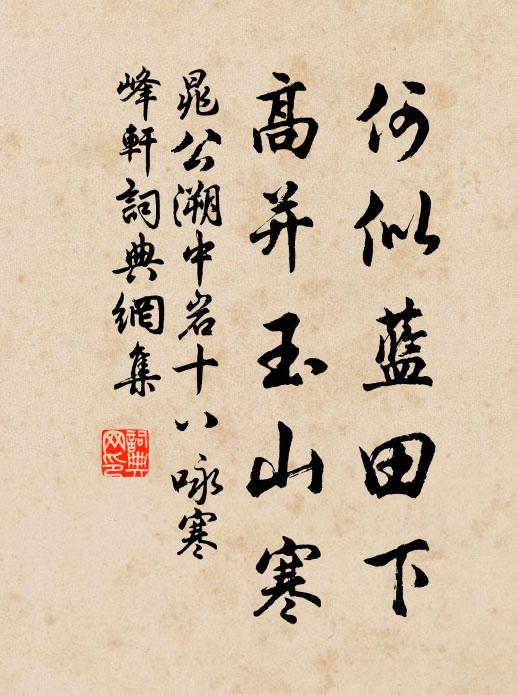 何似藍田下
高并玉山寒
晁公溯中岩十八咏寒
峰軒詞典網集
詞典
网印